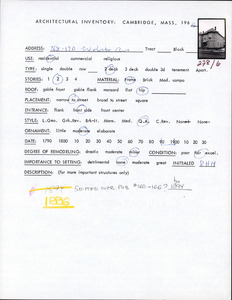 ARCHITECTURAL INVENTORY. CAMBRIDGE, MASS, 196
278/6
ADDRESS: Tract Block
USE: residential commercial religious
TYPE: single double row 2 deck 3 deck double 3d tenement Apart.
STORIES: 1 2 3 4 MATERIAL: Frame Brick Mod. compo
ROOF: gable front gable flank mansard flat hip
PLACEMENT: narrow to street broad to street square
ENTRANCE: flank front side front center
STYLE: L.Geo. Gk.Rev. Brk-It. Mans. Med. Q.A. C.Rev. None
ORNAMENT: little moderate elaborate
DATE: 1790 1830 10 20 30 40 50 60 70 80 90 1900 10 20 30
DEGREE OF REMODELING: drastic moderate minor CONDITION: poor fair excel.
IMPORTANCE TO SETTING: detrimental none moderate great INITIALED BHH
DESCRIPTION: (for more important structures only)
1886